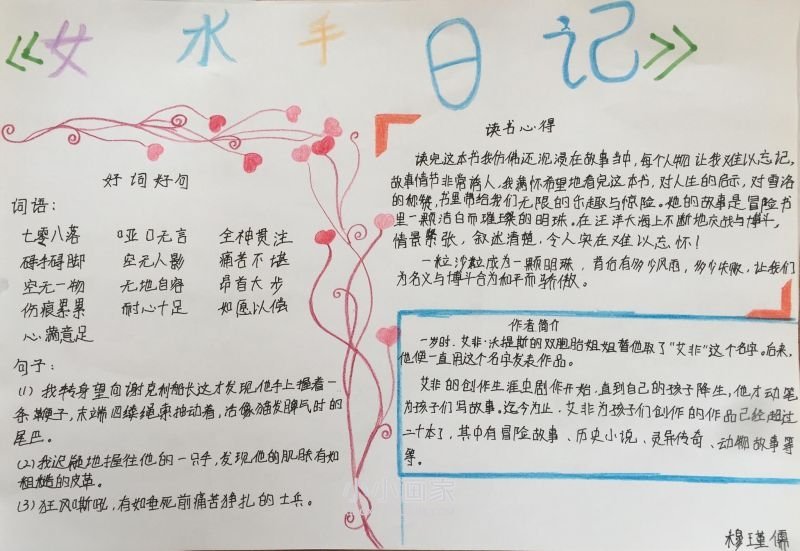 《女水手日记》
好词好句
词语：
七零八落 口亚口无言 全神贯注
碍手碍脚 空无人影 痛苦不堪
空无一物 无地自容 昂首大步
伤痕累累 耐心十足 如愿以偿
心满意足
句子：
(1) 我转身望向谢克利船长这才发现他手上握着一
条鞭子，末端四缕绳束抽动着，活像猫发脾气时的
尾巴。
(2) 我迟疑地握住他的一只手，发现他的肌肤有如
粗糙的皮革。
(3) 狂风嘶吼，有如垂死前痛苦挣扎的士兵。
读书心得
读完这本书我仿佛还沉浸在故事当中，每个人物让我难以忘记，
故事情节非常诱人，我满怀希望地看完这本书，对人生的启示，对雪洛
的称赞，书里带给我们无限的乐趣与惊险。她的故事是冒险书
里一颗洁白而璀璨的明珠。在汪洋大海上不断地交战与博斗，
情景紧张，叙述清楚，令人实在难以忘怀！
一粒沙粒成为一颗明珠，背后有多少风雨，多少失败，让我们
为名义与博斗合为和平而骄傲。
作者简介
一岁时，艾非·沃提斯的双胞胎姐姐替他取了“艾非”这个名字。后来，
他便一直用这个名字发表作品。
艾非的创作生涯由剧作开始，直到自己的孩子降生，他才动笔
为孩子们写故事。迄今为止，艾非为孩子们创作的作品已经超过
二十本了，其中有冒险故事、历史小说、灵异传奇、动物故事等
等。
小小画家
穆瑾儒